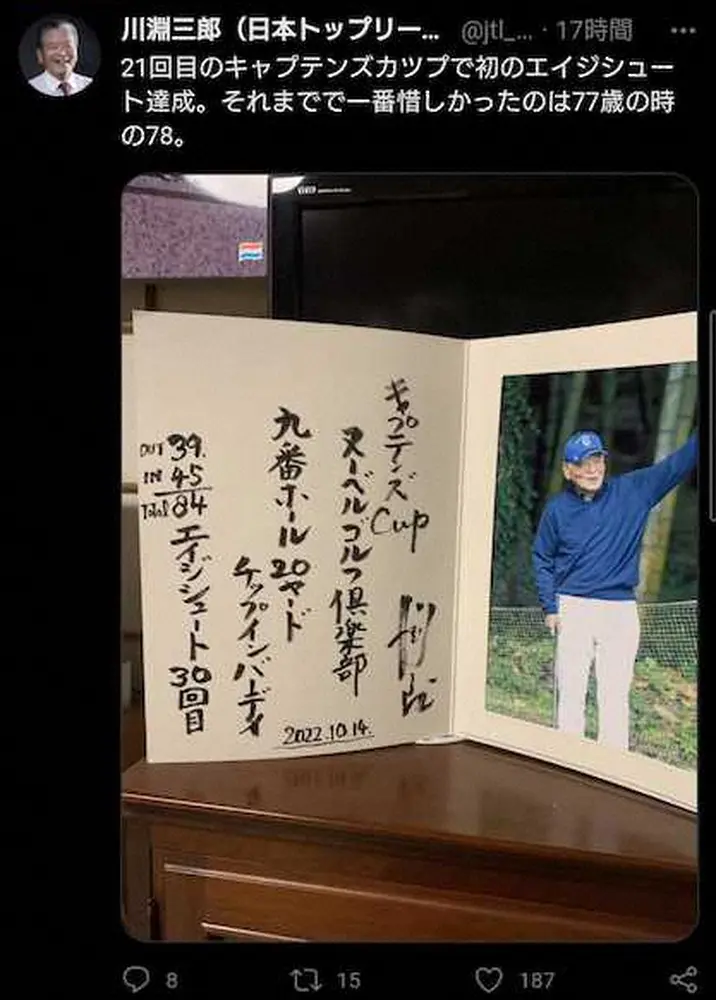 川淵三郎（日本トップリー... @jtl_... · 17時間
21回目のキャプテンズカツプで初のエイジシュー
ト達成。それまでで一番惜しかったのは77歳の時
の78。
キャプテンズCup
ヌーベルゴルフ倶楽部
九番ホール20ヤード
チップインバーディ
2022.10.14.
OUT 39.
IN 45
Total 84
エイジシュート30回目
8 15 187